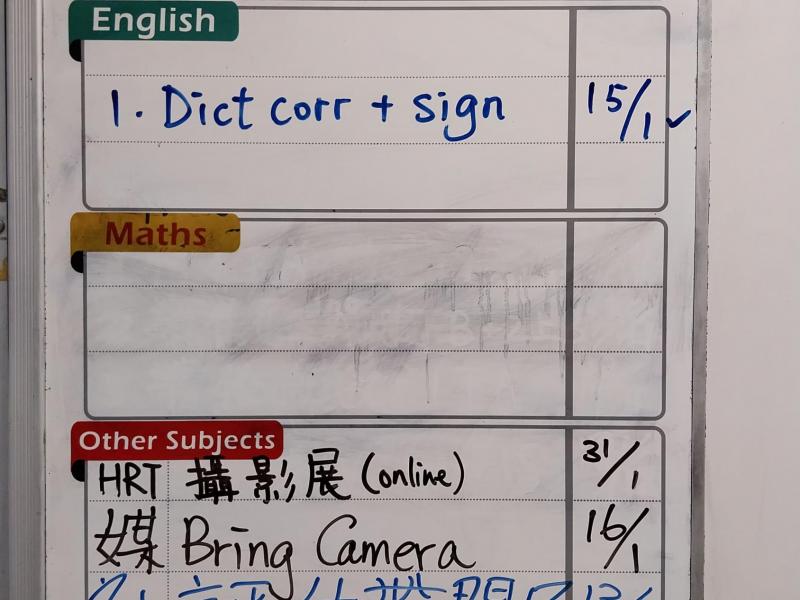 English
1. Dict corr + sign 15/1 ✓
Maths
Other Subjects
HRT 攝影展 (online) 31/1
媒 Bring Camera 16/1